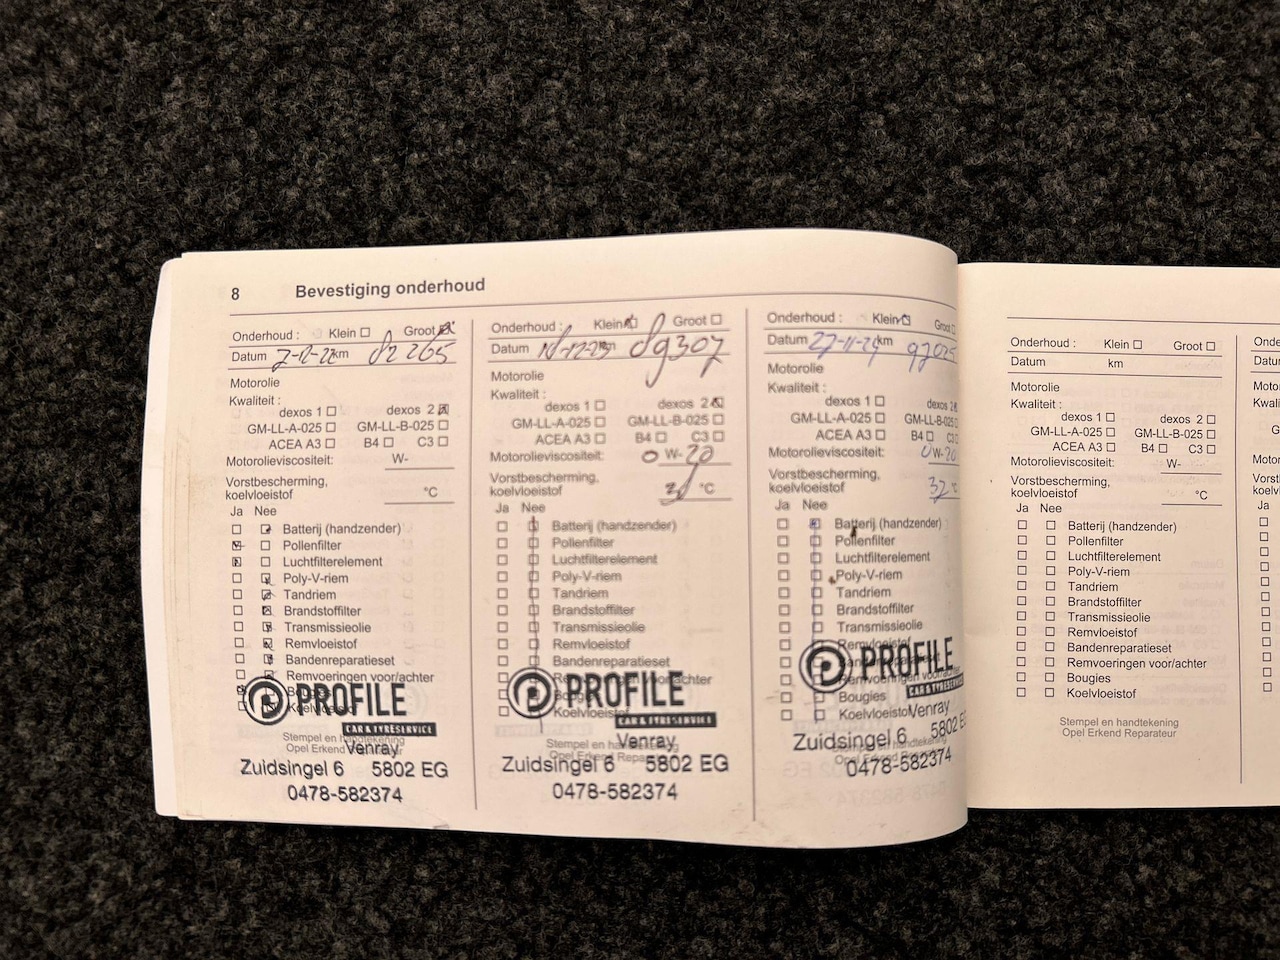 8 Bevestiging onderhoud
Onderhoud : Klein Groot
Datum 7-12-22 km 82265
Motorolie
Kwaliteit :
dexos 1 dexos 2
GM-LL-A-025 GM-LL-B-025
ACEA A3 B4 C3
Motorolieviscositeit: W-
Vorstbescherming,
koelvloeistof °C
Ja Nee
Batterij (handzender)
Pollenfilter
Luchtfilterelement
Poly-V-riem
Tandriem
Brandstoffilter
Transmissieolie
Remvloeistof
Bandenreparatieset
Remvoeringen voor/achter
Bougies
Koelvloeistof
PROFILE
CAR & TYRESERVICE
Stempel en handtekening
Opel Erkend Reparateur
Venray
Zuidsingel 6 5802 EG
0478-582374
Onderhoud : Klein Groot
Datum 18-12-23 km 89307
Motorolie
Kwaliteit :
dexos 1 dexos 2
GM-LL-A-025 GM-LL-B-025
ACEA A3 B4 C3
Motorolieviscositeit: 0 W-20
Vorstbescherming,
koelvloeistof °C
Ja Nee
Batterij (handzender)
Pollenfilter
Luchtfilterelement
Poly-V-riem
Tandriem
Brandstoffilter
Transmissieolie
Remvloeistof
Bandenreparatieset
Remvoeringen voor/achter
Bougies
Koelvloeistof
PROFILE
CAR & TYRESERVICE
Stempel en handtekening
Opel Erkend Reparateur
Venray
Zuidsingel 6 5802 EG
0478-582374
Onderhoud : Klein Groot
Datum 27-11-24 km
Motorolie
Kwaliteit :
dexos 1 dexos 2
GM-LL-A-025 GM-LL-B-025
ACEA A3 B4 C3
Motorolieviscositeit: 0 W-20
Vorstbescherming,
koelvloeistof 32 °C
Ja Nee
Batterij (handzender)
Pollenfilter
Luchtfilterelement
Poly-V-riem
Tandriem
Brandstoffilter
Transmissieolie
Remvloeistof
Bandenreparatieset
Remvoeringen voor/achter
Bougies
Koelvloeistof
PROFILE
CAR & TYRESERVICE
Venray
Zuidsingel 6 5802 EG
0478-582374
Onderhoud : Klein Groot
Datum km
Motorolie
Kwaliteit :
dexos 1 dexos 2
GM-LL-A-025 GM-LL-B-025
ACEA A3 B4 C3
Motorolieviscositeit: W-
Vorstbescherming,
koelvloeistof °C
Ja Nee
Batterij (handzender)
Pollenfilter
Luchtfilterelement
Poly-V-riem
Tandriem
Brandstoffilter
Transmissieolie
Remvloeistof
Bandenreparatieset
Remvoeringen voor/achter
Bougies
Koelvloeistof
Stempel en handtekening
Opel Erkend Reparateur
Ja